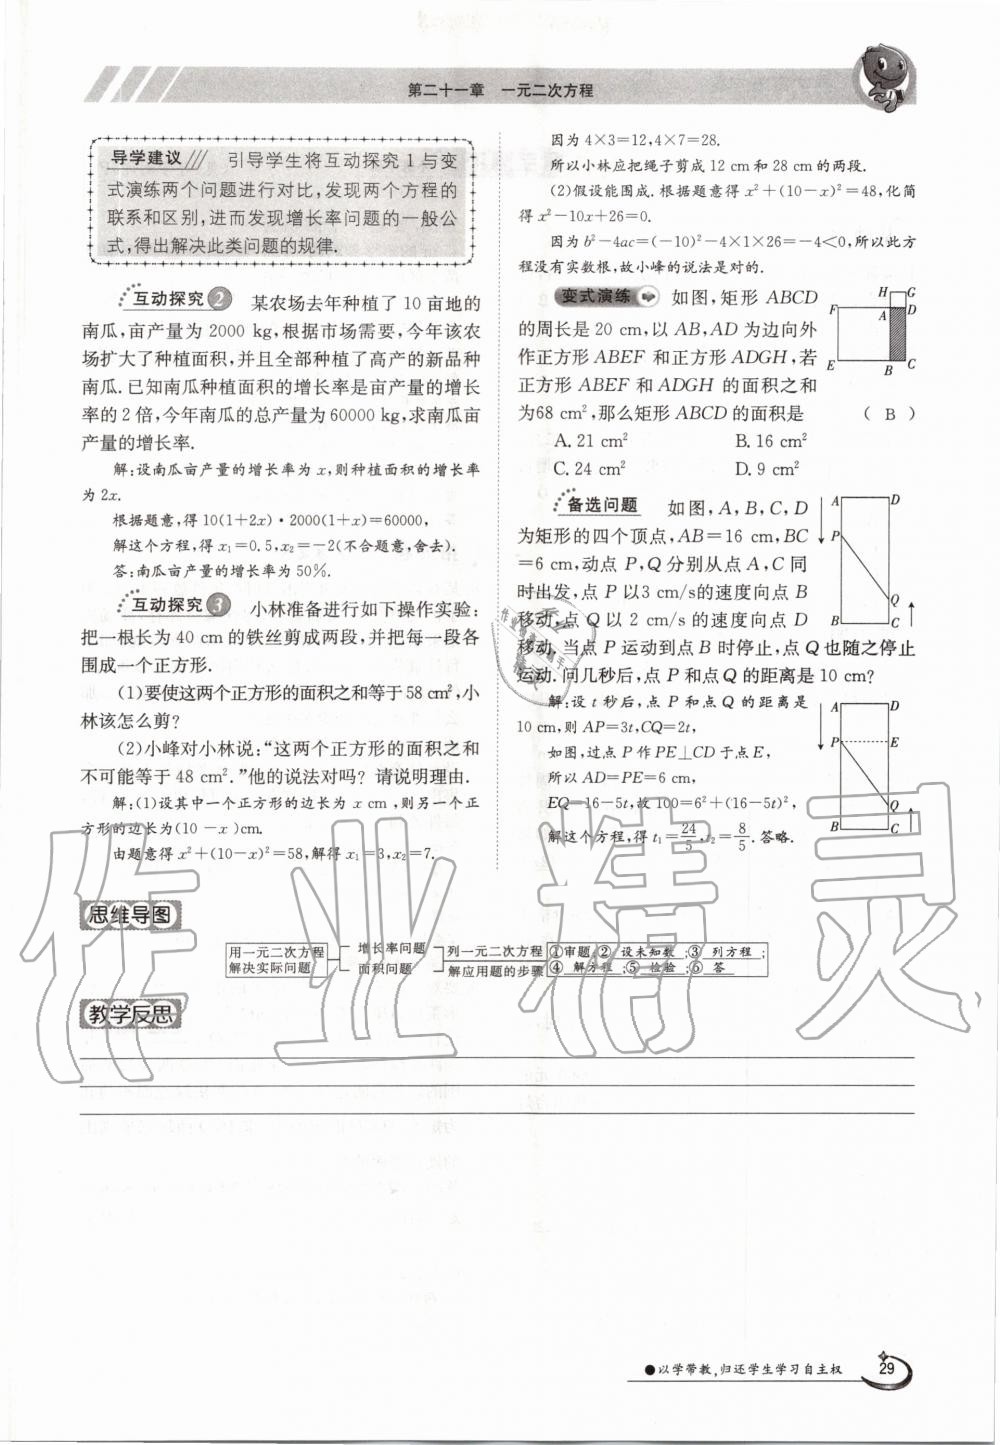 第二十一章 一元二次方程
导学建议 引导学生将互动探究 1 与变
式演练两个问题进行对比,发现两个方程的
联系和区别,进而发现增长率问题的一般公
式,得出解决此类问题的规律.
互动探究 2 某农场去年种植了 10 亩地的
南瓜,亩产量为 2000 kg,根据市场需要,今年该农
场扩大了种植面积,并且全部种植了高产的新品种
南瓜.已知南瓜种植面积的增长率是亩产量的增长
率的 2 倍,今年南瓜的总产量为 60000 kg,求南瓜亩
产量的增长率.
解:设南瓜亩产量的增长率为 x,则种植面积的增长率
为 2x.
根据题意,得 10(1+2x)·2000(1+x)=60000,
解这个方程,得 x₁=0.5,x₂=-2(不合题意,舍去).
答:南瓜亩产量的增长率为 50%.
互动探究 3 小林准备进行如下操作实验:
把一根长为 40 cm 的铁丝剪成两段,并把每一段各
围成一个正方形.
(1)要使这两个正方形的面积之和等于 58 cm²,小
林该怎么剪?
(2)小峰对小林说:“这两个正方形的面积之和
不可能等于 48 cm².”他的说法对吗? 请说明理由.
解:(1)设其中一个正方形的边长为 x cm,则另一个正
方形的边长为(10-x)cm.
由题意得 x²+(10-x)²=58,解得 x₁=3,x₂=7.
因为 4×3=12,4×7=28.
所以小林应把绳子剪成 12 cm 和 28 cm 的两段.
(2)假设能围成.根据题意得 x²+(10-x)²=48,化简
得 x²-10x+26=0.
因为 b²-4ac=(-10)²-4×1×26=-4<0,所以此方
程没有实数根,故小峰的说法是对的.
变式演练 如图,矩形 ABCD
的周长是 20 cm,以 AB,AD 为边向外
作正方形 ABEF 和正方形 ADGH,若
正方形 ABEF 和 ADGH 的面积之和
为68 cm²,那么矩形 ABCD 的面积是 ( B )
A. 21 cm² B. 16 cm²
C. 24 cm² D. 9 cm²
H G
F A D
E B C
备选问题 如图,A,B,C,D
为矩形的四个顶点,AB=16 cm,BC
=6 cm,动点 P,Q 分别从点 A,C 同
时出发,点 P 以3 cm/s的速度向点 B
移动,点 Q 以 2 cm/s 的速度向点 D
移动.当点 P 运动到点 B 时停止,点 Q 也随之停止
运动.问几秒后,点 P 和点 Q 的距离是 10 cm?
A D
P
Q
B C
解:设 t 秒后,点 P 和点 Q 的距离是
10 cm,则 AP=3t,CQ=2t,
如图,过点 P 作 PE⊥CD 于点 E,
所以 AD=PE=6 cm,
EQ=16-5t,故 100=6²+(16-5t)²,
解这个方程,得 t₁=24/5,t₂=8/5.答略.
A D
P E
Q
B C
思维导图
用一元二次方程
解决实际问题
增长率问题
面积问题
列一元二次方程
解应用题的步骤
①审题;② 设未知数 ;③ 列方程 ;
④ 解方程 ;⑤ 检验 ;⑥ 答
教学反思
●以学带教,归还学生学习自主权
29
作业精灵